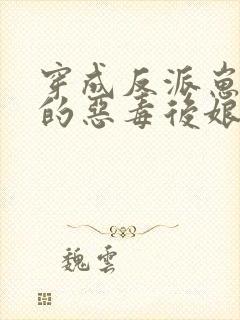 穿成反派崽
的惡毒後娘
魏雲